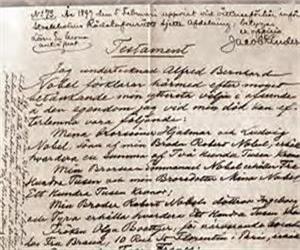 No 73. År 1897 den 5 Februari uppvist vid vittnesförhör inför
Stockholms Rådstufvurätts sjette Afdelning, betygar
Testament
Jag undertecknad Alfred Bernhard
Nobel förklarar härmed efter moget
betänkande min yttersta vilja i afseende
å den egendom jag vid min död kan ef-
terlemna vara följande:
Mina Brorsöner Hjalmar och Ludvig
Nobel, söner af min Broder Robert Nobel, erhålla
hvardera en summa af Två Hundra Tusen
Min Brorson Emmanuel Nobel erhåller Tre
Hundra Tusen och min Brorsdotter Mina Nobel
Ett Hundra Tusen Kronor;
Min Broder Robert Nobels döttrar Ingeborg
och Tyra erhålla hvardera Ett Hundra Tusen
Fröken Olga Boettger, för närvarande boende
hos Fru Brand, 10 Rue St Florentin, Paris,